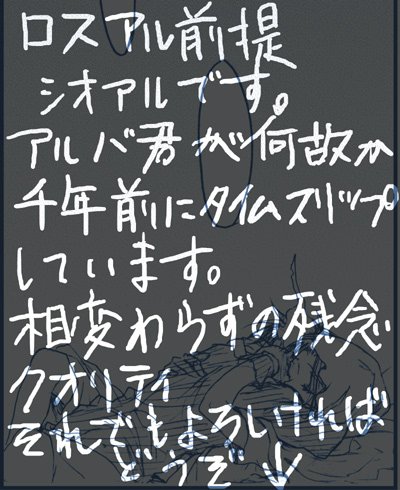 ロスアル前提
シオアルです。
アルバ君が何故か
千年前にタイムスリップ
しています。
相変わらずの残念
クオリティ
それでもよろしければ
どうぞ↓